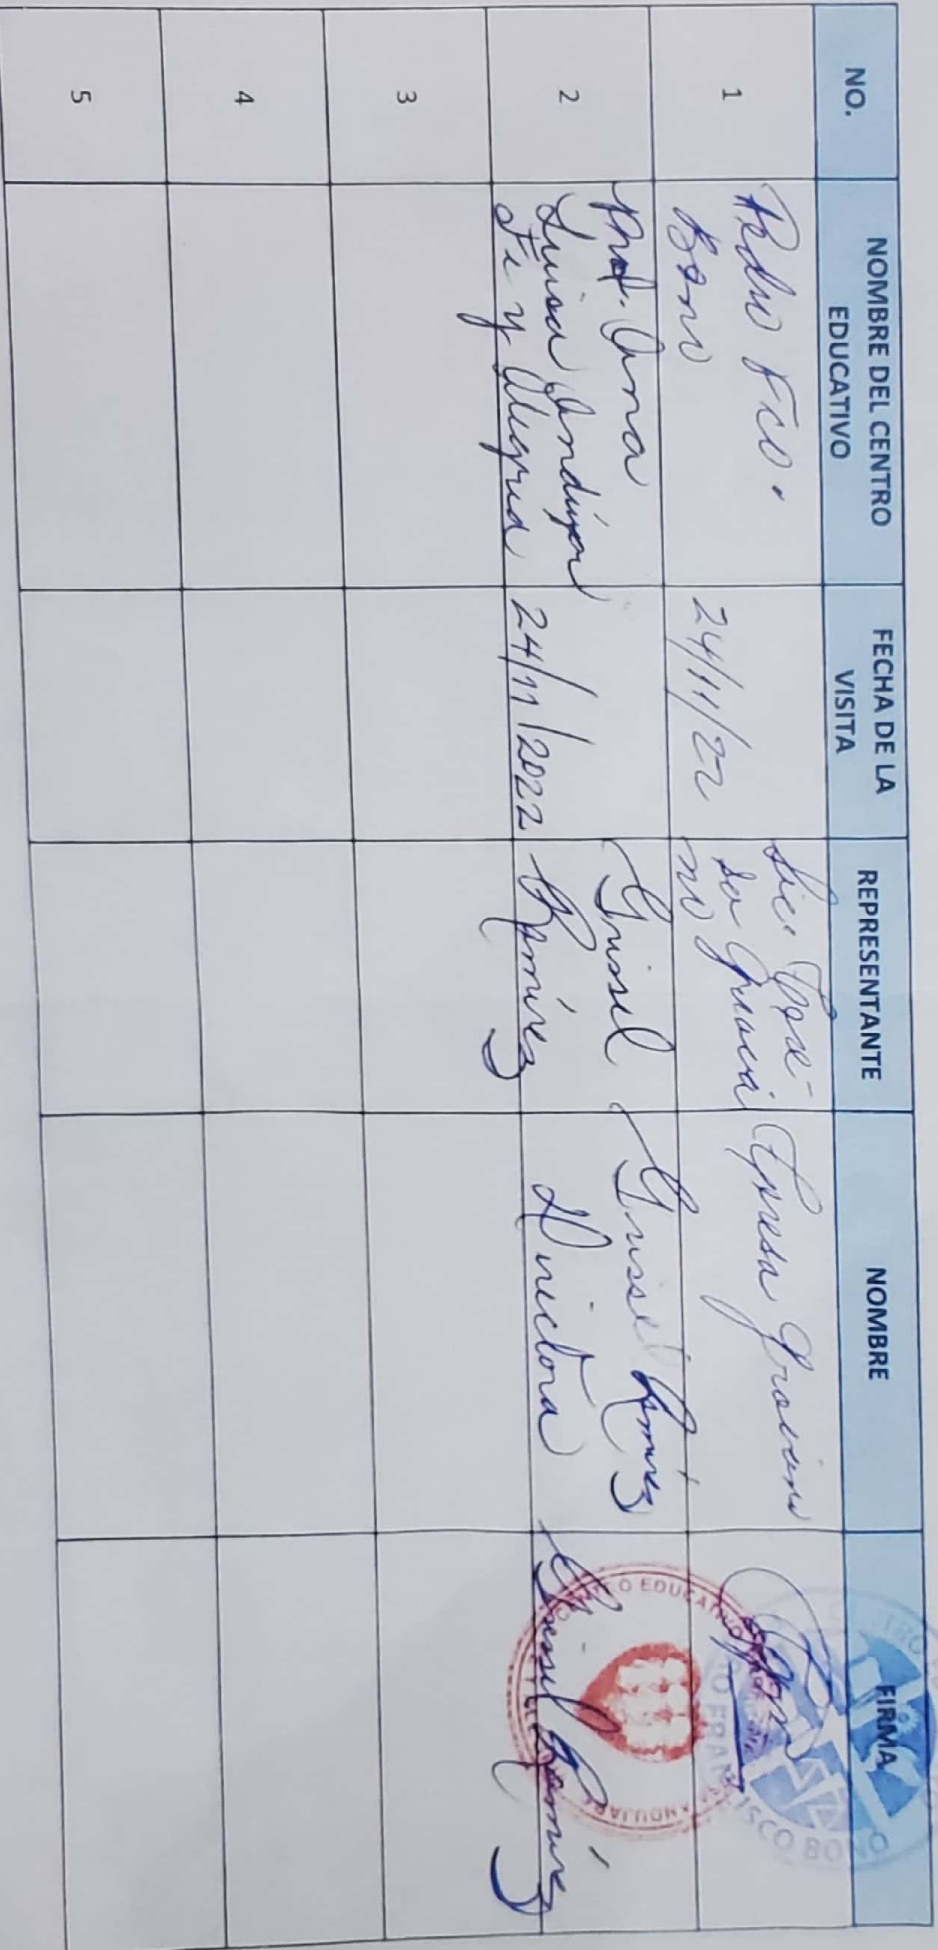 NO.
NOMBRE DEL CENTRO
EDUCATIVO
FECHA DE LA
VISITA
REPRESENTANTE
NOMBRE
FIRMA
1
Pedro Fco.
Bono
24/11/22
Lic. Tere-
sa
no
Teresa
2
Prof. Ana
Luisa Andújar
Fe y Alegría
24/11/2022
Grisel
Ramírez
Grisel Ramírez
Directora
Grisel Ramírez
3
4
5
CENTRO EDUCATIVO
FRANCISCO BONO